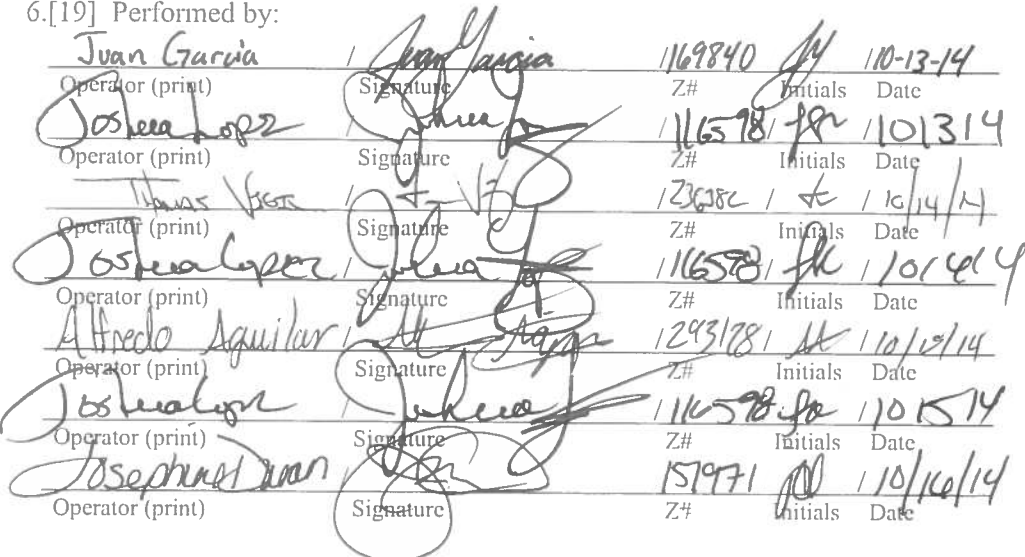 6.[19] Performed by:
Juan Garcia / Juan Garcia /169840 /10-13-14
Operator (print) Signature Z# Initials Date
Joshua Lopez / Joshua /116598/ /101314
Operator (print) Signature Z# Initials Date
Thomas / / /10/14/14
Operator (print) Signature Z# Initials Date
Joshua Lopez / Joshua /116598/ /101414
Operator (print) Signature Z# Initials Date
Alfredo Aguilar / /293178/ /10/15/14
Operator (print) Signature Z# Initials Date
Joshua Lopez / Joshua /116598 /101514
Operator (print) Signature Z# Initials Date
Josephine Duran / 151971 /10/16/14
Operator (print) Signature Z# Initials Date